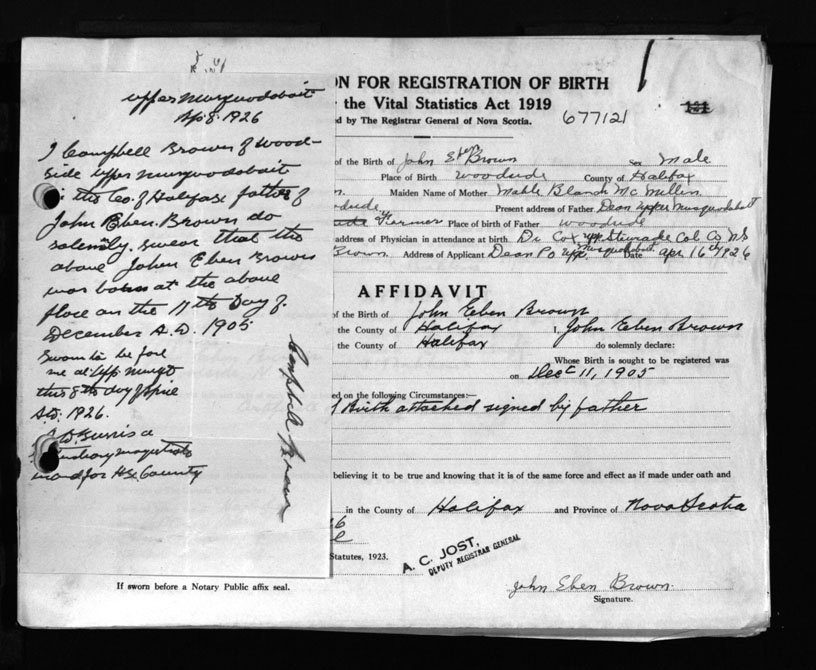 Upper Musquodoboit
Ap 8. 1926
I Campbell Brown of Wood-
side Upper Musquodoboit
in the Co. of Halifax father of
John Eben. Brown do
solemnly. swear that the
above John Eben Brown
was born at the above
place on the 11th Day of
December A.D. 1905
Sworn to before
me at Upp. Musqt
this 8th day of April
A.D. 1926.
in and for Hx County
Campbell Brown
ON FOR REGISTRATION OF BIRTH
the Vital Statistics Act 1919
ed by The Registrar General of Nova Scotia.
677121
of the Birth of John Eben Brown Sex Male
Place of Birth Woodside County of Halifax
Maiden Name of Mother Mable Blanch McMillen
Present address of Father Dean Upper Musquodoboit
Farmer Place of birth of Father Woodside
address of Physician in attendance at birth Dr Cox Upp Stewiacke Col. Co NS
Brown Address of Applicant Dean PO Upp. Musquodoboit Date Apr 16th 1926
AFFIDAVIT
of the Birth of John Eben Brown
the County of Halifax I, John Eben Brown
the County of Halifax do solemnly declare:
Whose Birth is sought to be registered was
on Dec 11, 1905
ed on the following Circumstances:—
Birth attached signed by father
believing it to be true and knowing that it is of the same force and effect as if made under oath and
in the County of Halifax and Province of Nova Scotia
Statutes, 1923.
A. C. JOST,
DEPUTY REGISTRAR GENERAL
If sworn before a Notary Public affix seal.
John Eben Brown.
Signature.